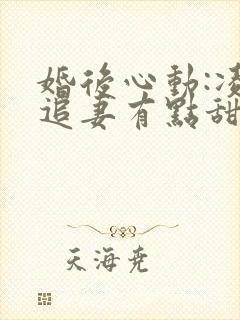 婚後心動:凌
追妻有點甜
天海堯